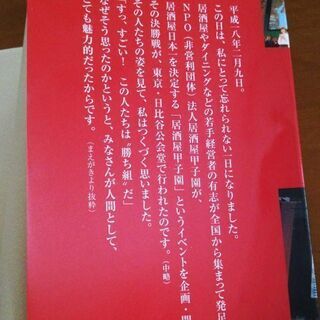 平成一八年二月九日。
この日は、私にとって忘れられない一日になりました。
居酒屋やダイニングなどの若手経営者の有志が全国から集まって発足
NPO（非営利団体）法人居酒屋甲子園が、
居酒屋日本一を決定する「居酒屋甲子園」というイベントを企画・開
その決勝戦が、東京・日比谷公会堂で行われたのです。（中略）
その人たちの姿を見て、私はつくづく思いました。
すっ、すごい！　この人たちは〝勝ち組〟だ」
なぜそう思ったのかというと、みなさんが人間として、
とても魅力的だったからです。（まえがきより抜粋）